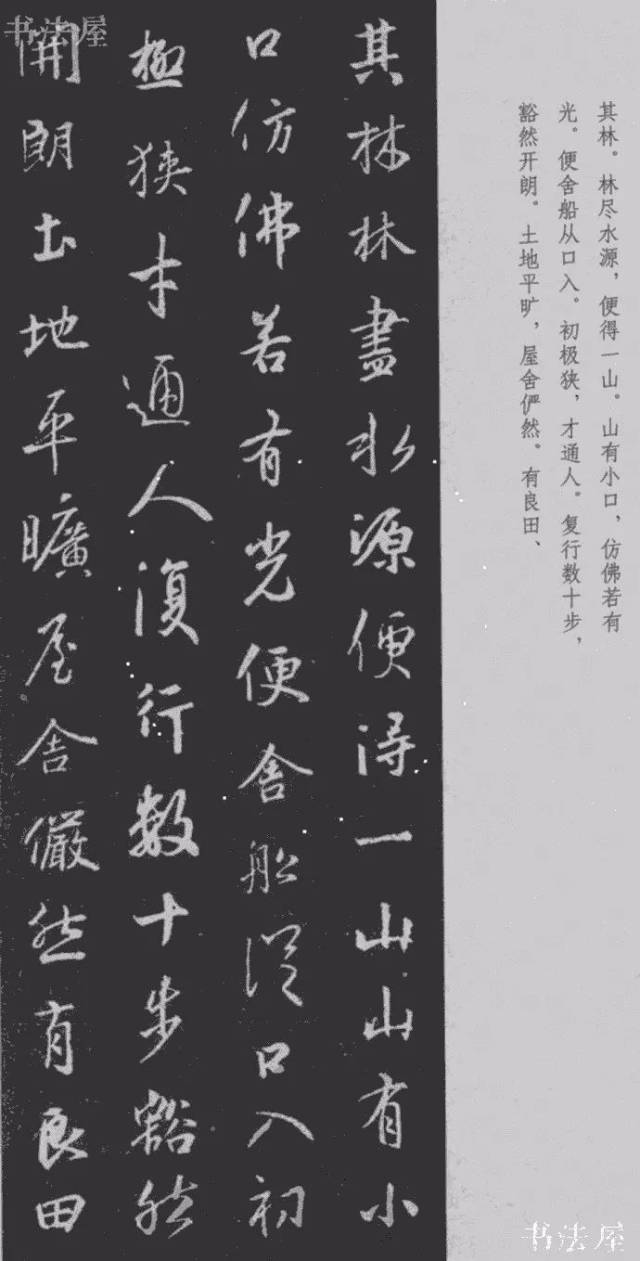 其林林盡水源便得一山山有小
口仿佛若有光便舍船從口入初
極狹才通人復行数十步豁然
開朗土地平曠屋舍儼然有良田
其林。林尽水源，便得一山。山有小口，仿佛若有
光。便舍船从口入。初极狭，才通人。复行数十步，
豁然开朗。土地平旷，屋舍俨然。有良田、
书法屋
书法屋